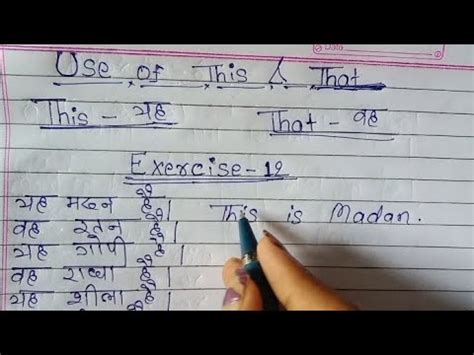 Use of This & That
This - यह That - वह
Exercise - 12
यह मदन है। This is Madan.
वह रतन है।
यह गोपी है।
वह राधा है।
यह शीला है।